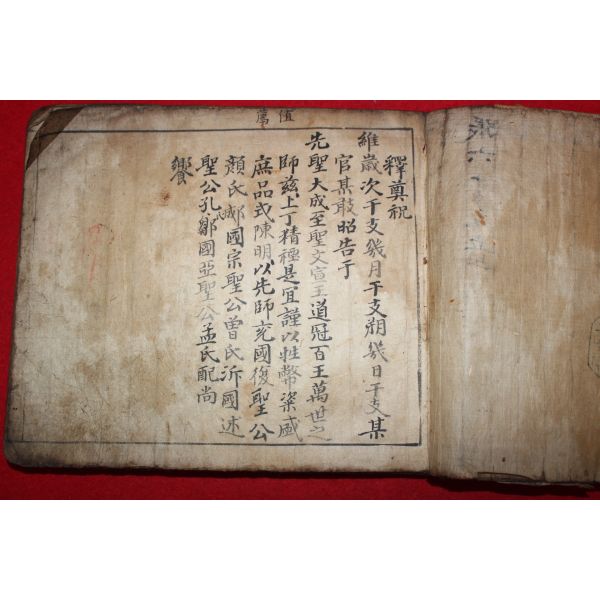 釋奠祝
維歲次干支幾月干支朔幾日干支某
官某敢昭告于
先聖大成至聖文宣王道冠百王萬世之
師玆上丁精禋是宜謹以牲幣粢盛
庶品式陳明以先師兗國復聖公
顔氏郕國宗聖公曾氏沂國述
聖公孔氏鄒國亞聖公孟氏配尚
饗